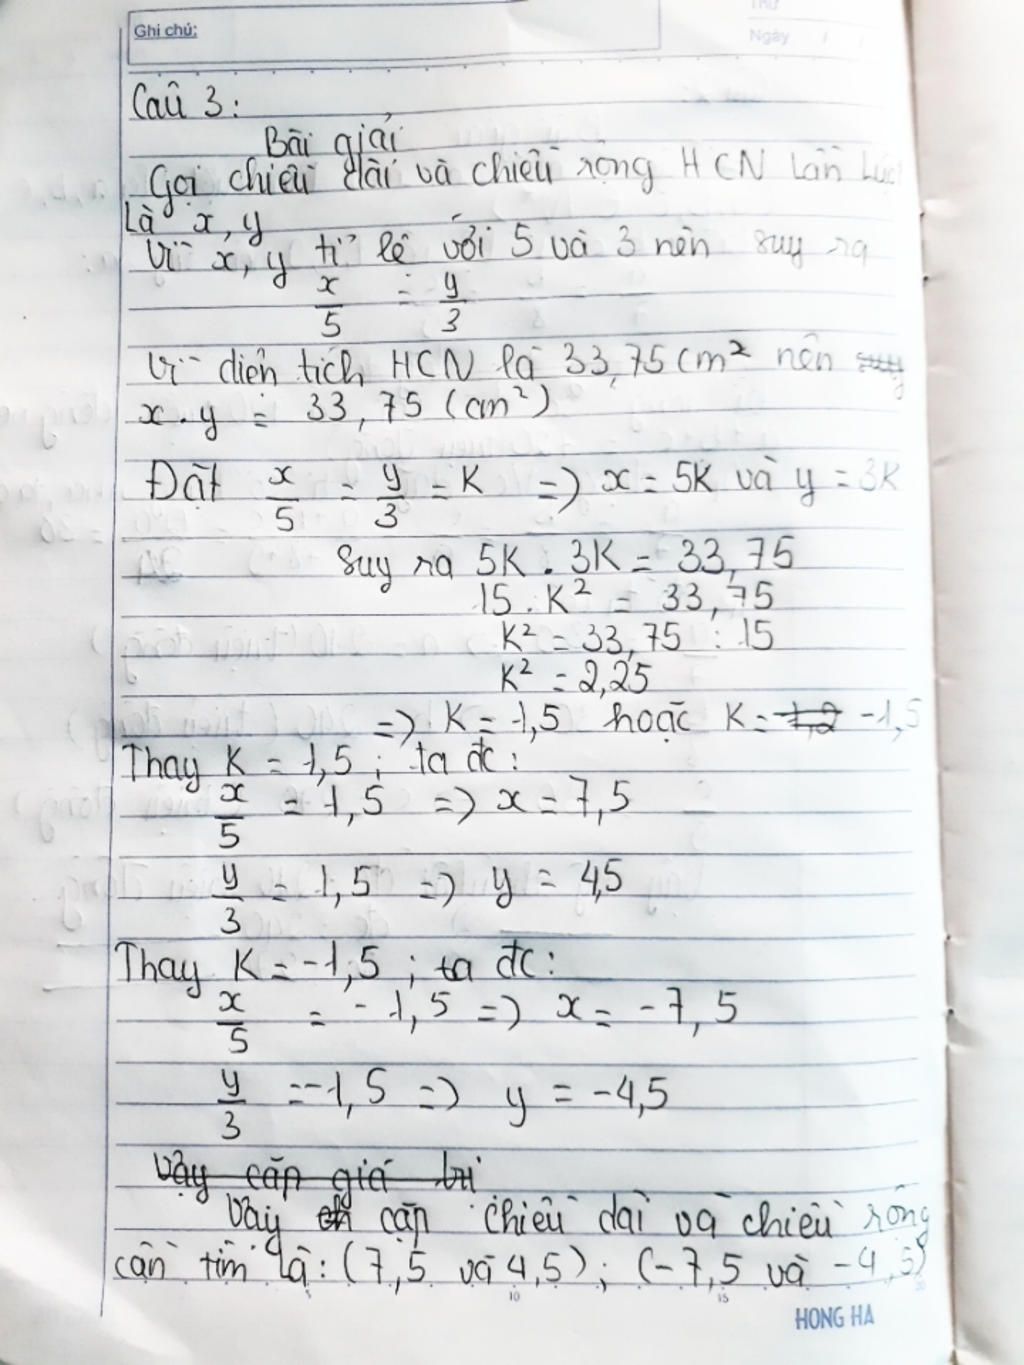 Ghi chú:
Thứ
Ngày / /
Câu 3:
Bài giải
Gọi chiều dài và chiều rộng HCN lần lượt
là x, y
Vì x, y tỉ lệ với 5 và 3 nên suy ra
x/5 = y/3
Vì diện tích HCN là 33,75 cm² nên suy
x . y = 33,75 (cm²)
Đặt x/5 = y/3 = K => x = 5K và y = 3K
Suy ra 5K . 3K = 33,75
15 . K² = 33,75
K² = 33,75 : 15
K² = 2,25
=> K = 1,5 hoặc K = 1,2 -1,5
Thay K = 1,5 ; ta đc :
x/5 = 1,5 => x = 7,5
y/3 = 1,5 => y = 4,5
Thay K = -1,5 ; ta đc :
x/5 = -1,5 => x = -7,5
y/3 = -1,5 => y = -4,5
Vậy cặp giá trị
Vậy cặp chiều dài và chiều rộng
cần tìm là : (7,5 và 4,5) ; (-7,5 và -4,5)
5 10 15 20
HONG HA